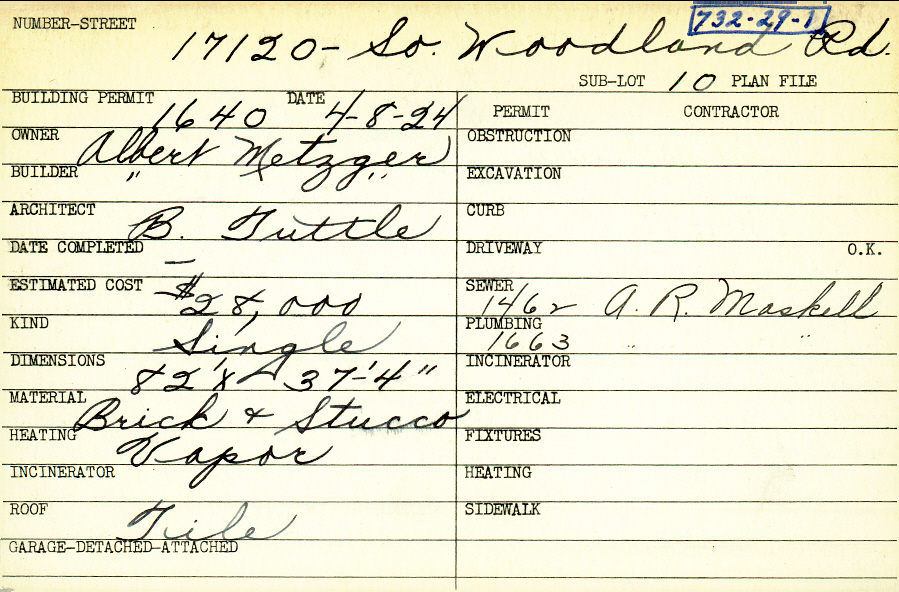 732-29-1
NUMBER-STREET
17120- So. Woodland Rd.
SUB-LOT 10 PLAN FILE
BUILDING PERMIT 1640 DATE 4-8-24
PERMIT CONTRACTOR
OWNER Albert Metzger
OBSTRUCTION
BUILDER " "
EXCAVATION
ARCHITECT B. Tuttle
CURB
DATE COMPLETED —
DRIVEWAY O.K.
ESTIMATED COST $28,000
SEWER 1462 A. R. Maskell
KIND Single
PLUMBING 1663 " "
DIMENSIONS 82'x 37'-4"
INCINERATOR
MATERIAL Brick & Stucco
ELECTRICAL
HEATING Vapor
FIXTURES
INCINERATOR
HEATING
ROOF Tile
SIDEWALK
GARAGE-DETACHED-ATTACHED